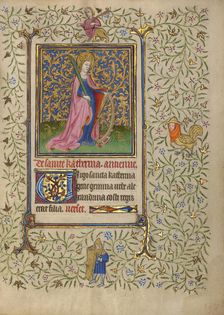 De sancte katherina. antienne
Virgo sancta katherina
grecie gemma urbe ale
xandrina costi regis
erat filia. verset